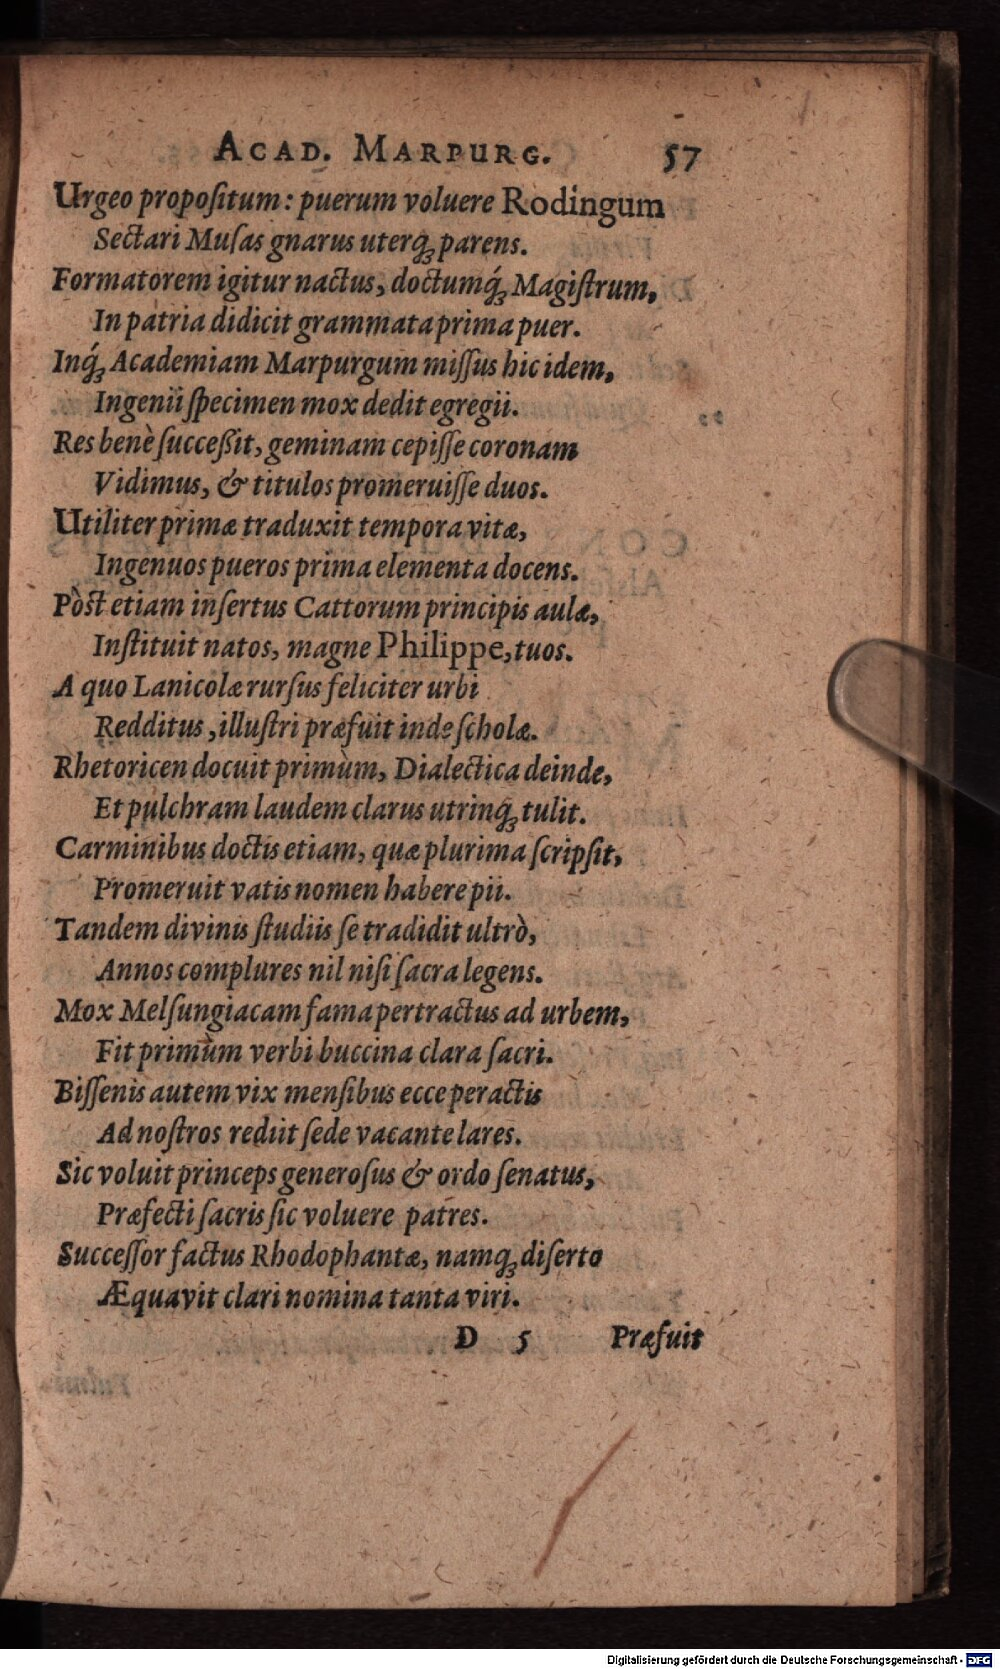 ACAD. MARPURG. 57
Urgeo propoſitum: puerum voluere Rodingum
Sectari Muſas gnarus uterq́ꝫ parens.
Formatorem igitur nactus, doctumq́ꝫ Magiſtrum,
In patria didicit grammata prima puer.
Inq́ꝫ Academiam Marpurgum miſſus hic idem,
Ingenii ſpecimen mox dedit egregii.
Res benè ſucceßit, geminam cepiſſe coronam
Vidimus, & titulos promeruiſſe duos.
Utiliter primæ traduxit tempora vitæ,
Ingenuos pueros prima elementa docens.
Pòſt etiam inſertus Cattorum principis aulæ,
Inſtituit natos, magne Philippe, tuos.
A quo Lanicolæ rurſus feliciter urbi
Redditus, illuſtri præfuit inde ſcholæ.
Rhetoricen docuit primùm, Dialectica deinde,
Et pulchram laudem clarus utrinqꝫ tulit.
Carminibus doctis etiam, quæ plurima ſcripſit,
Promeruit vatis nomen habere pii.
Tandem divinis ſtudiis ſe tradidit ultrò,
Annos complures nil niſi ſacra legens.
Mox Melſungiacam fama pertractus ad urbem,
Fit primùm verbi buccina clara ſacri.
Biſſenis autem vix menſibus ecce peractis
Ad noſtros rediit ſede vacante lares.
Sic voluit princeps generoſus & ordo ſenatus,
Præfecti ſacris ſic voluere patres.
Succeſſor factus Rhodophantæ, namqꝫ diſerto
Æquavit clari nomina tanta viri.
D 5 Præfuit
Digitalisierung gefördert durch die Deutsche Forschungsgemeinschaft - DFG